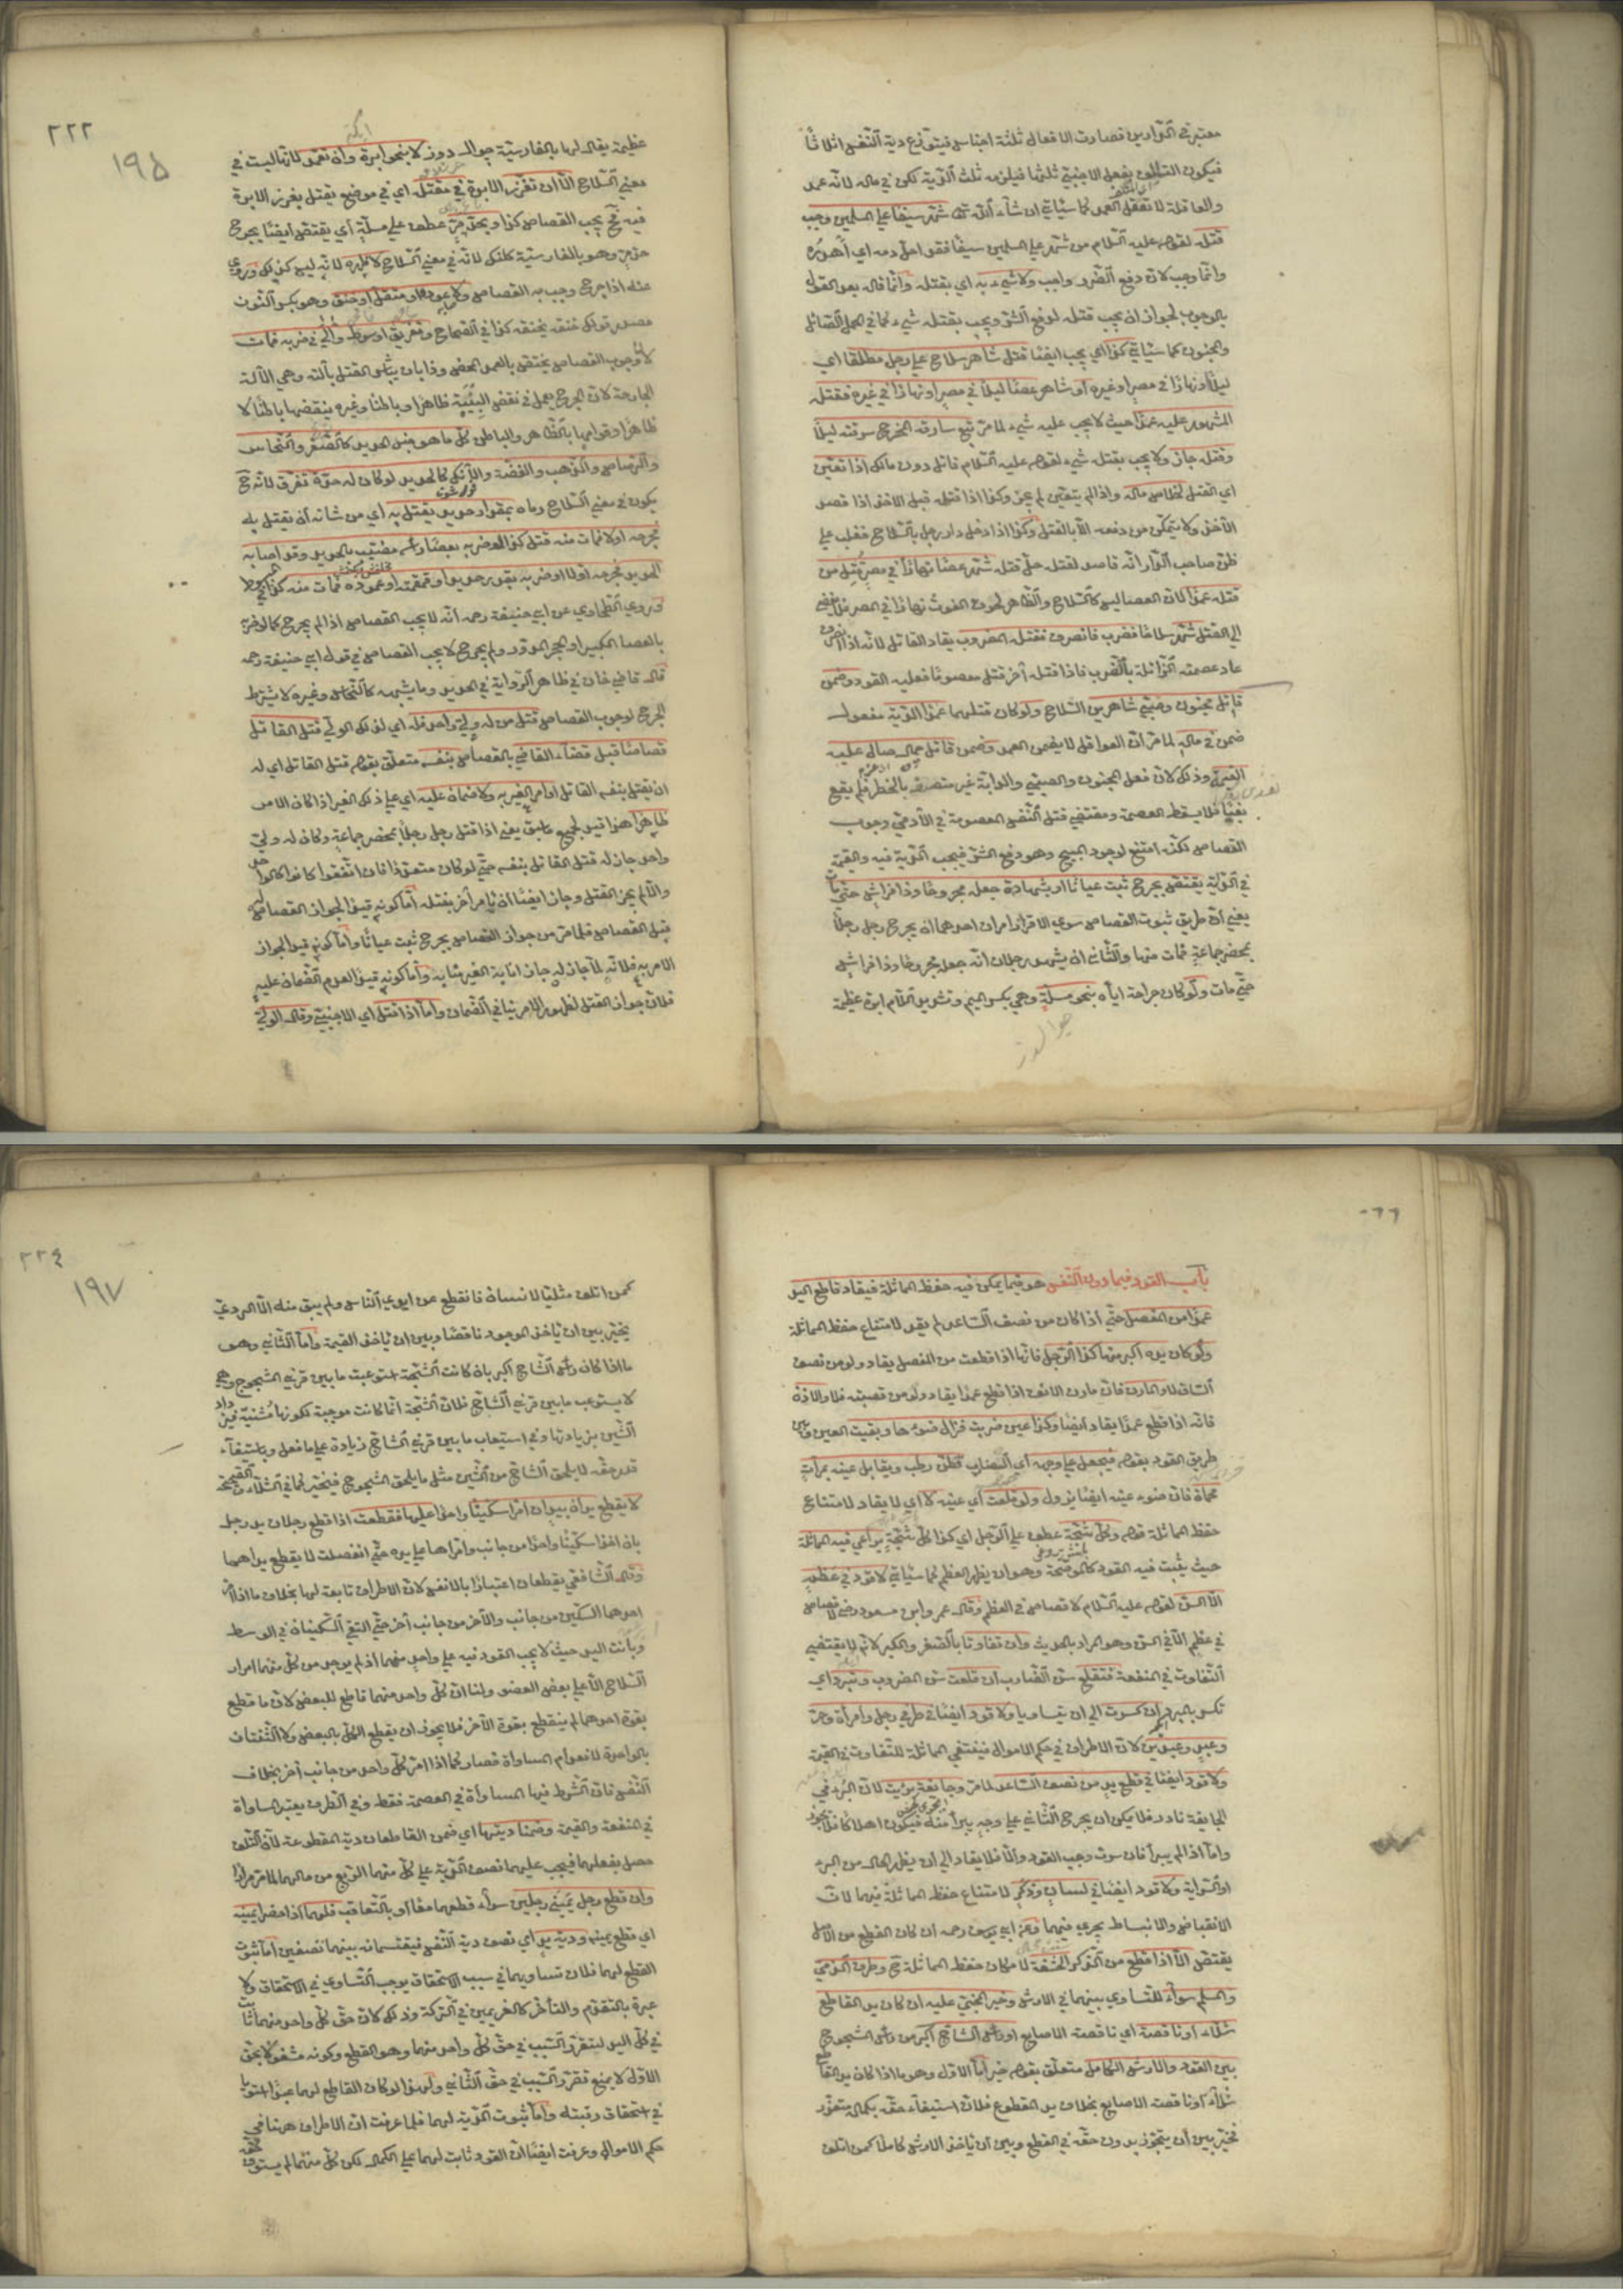 معتبر في الدارين فصارت الافعال ثلثة اجناس فيتوزع دية النفس اثلاثا
فيكون التالف بفعل الاجنبي ثلثها فيلزمه ثلث الدية لكن في ماله لانه عمد
والعاقلة لا تعقل العمد كما سيأتي ان شاء الله تعالى شهر سيفا على المسلمين وجب
قتله لقوله عليه السلام من شهر على المسلمين سيفا فقد احل دمه اي اهدره
وانما وجب لان دفع الضرر واجب ولا شيء به اي بقتله وانما قال بعد القول
بالوجوب لجواز ان يجب قتله لدفع الشر ويجب بقتله شيء كما في الجمل الصائل
والمجنون كما سيأتي كذا اي يجب ايضا قتل شاهر سلاح على رجل مطلقا اي
ليلا او نهارا في مصر او غيره او شاهر عصا ليلا في مصر او نهارا في غيره فقتله
المشهور عليه عمدا حيث لا يجب عليه شيء لما مر تبع سارقه المخرج سرقته ليلا
وقتله جاز ولا يجب بقتله شيء لقوله عليه السلام قاتل دون مالك اذا تعين
اي القتل لخلاص ماله واذا لم يتعين لم يجز وكذا اذا قتله قبل الاخذ اذا قصد
الاخذ ولا يتمكن من دفعه الا بالقتل وكذا اذا دخل دار رجل بالسلاح فغلب على
ظن صاحب الدار انه قاصد لقتله حل قتله شهر عصا نهارا في مصر قتل من
قتله عمدا لان العصا ليس كالسلاح والظاهر لحوق الغوث نهارا في المصر فلا يفضي
الى القتل شهر سلاحا فضرب فانصرف فقتله المضروب يقاد القاتل لانه اذا انصرف
عاد عصمته الزائلة بالضرب فاذا قتله آخر قتل معصوما فعليه القود وضمن
قاتل مجنون وصبي شاهرين السلاح ولو كان قتلهما عمدا الدية مفعول
ضمن في ماله لما مر ان العواقل لا يضمن العمد وضمن قاتل جمل صال عليه
القيمة وذلك لان فعل المجنون والصبي والدابة غير متصف بالحظر فلم يقع
بغيا فلا يسقط العصمة ومقتضى قتل النفس المعصومة في الآدمي وجوب
القصاص لكنه امتنع لوجود المبيح وهو دفع الشر فيجب الدية فيه والقيمة
في الدابة يقتص بجرح ثبت عيانا او بشهادة جعله مجروحا وذا فراش حتى مات
يعني ان طريق ثبوت القصاص سوى الاقرار امران احدهما ان يجرح رجل رجلا
بمحضر جماعة فمات منها والثاني ان يشهد رجلان انه جعله مجروحا وذا فراش
حتى مات ولو كان جراحة اياه بنحو مسلة وهي بكسر الميم وتشديد اللام ابرة عظيمة
جوالدوز
٢٢٢
١٩٥
عظيمة يقال لها بالفارسية جوال دوز لا بنحو ابرة وان تعمد لانها ليست في
معنى السلاح الا ان تغرز الابرة في مقتل اي في موضع يقتل بغرز الابرة
فيه فح يجب القصاص كذا وبحد مر عطف على مسلة اي يقتص ايضا بجرح
حد مر وهو بالفارسية كلنك لانه في معنى السلاح لا ظهره لانه ليس كذلك وروي
عنه اذا جرح وجب به القصاص ولا عوده او مثقل او خنق وهو بكسر النون
مصدر قولك خنقه يخنقه كذا في الصحاح وتغريق او سوط والى في ضربه فمات
لان وجوب القصاص يختص بالعمد المحض وذا بان يباشر القتل بآلته وهي الآلة
الجارحة لان الجرح يعمل في نقض البنية ظاهرا وباطنا وغيره ينقضها باطنا لا
ظاهرا وقوامها بالظاهر والباطن كل ما هو من جنس الحديد كالصفر والنحاس
والرصاص والذهب والفضة والآنك كالحديد لو كان له حدة تفرق لانه ح
يكون في معنى السلاح رماه بمقراد حديد يقتل به اي من شانه ان يقتل به
فجرحه اولا فمات منه قتل كذا لو ضربه بعصا راسه مضبب بالحديد وقد اصابه
الحديد فجرحه اولا او ضربه بقدر حديد او قمقمة او عموده فمات منه كذا في المبسوط
وروى الطحاوي عن ابي حنيفة رحمه انه لا يجب القصاص اذا لم يجرح كما لو ضربه
بالعصا الكبير او الحجر المدور ولم يجرح لا يجب القصاص في قول ابي حنيفة رحمه
قال قاضي خان في ظاهر الرواية في الحديد وما يشبهه كالنحاس وغيره لا يشترط
الجرح لوجوب القصاص قتل من له ولي واحد فله اي لذلك الولي قتل القاتل
قصاصا قبل قضاء القاضي بالقصاص بنفسه متعلق بقوله قتل القاتل اي له
ان يقتل بنفسه القاتل او امر الغير به ولا ضمان عليه اي على ذلك الغير اذا كان الامر
ظاهرا هذا قيد لجميع ما سبق يعني اذا قتل رجل رجلا بمحضر جماعة وكان له ولي
واحد جاز له قتل القاتل بنفسه حتى لو كان متعددا فان اتفقوا كانوا كالواحد
والا لم يجز القتل وجاز ايضا ان يأمر آخر بقتله اما كونه قيدا لجواز القصاص
قبل القصاص فلما مر من جواز القصاص بجرح ثبت عيانا واما كونه قيدا لجواز
الامر به فلانه لما جاز له جاز انابة الغير منابه واما كونه قيدا لعدم الضمان عليه
فلان جواز القتل لظهور الامر ينافي الضمان واما اذا قتل اي الاجنبي وقال الولي
باب القود فيما دون النفس هو فيما يمكن فيه حفظ المماثلة فيقاد قاطع اليد
عمدا من المفصل حتى اذا كان من نصف الساعد لم يقد لامتناع حفظ المماثلة
ولو كان يده اكبر منها كذا الرجل فانها اذا قطعت من المفصل يقاد ولو من نصف
الساق لا والمارن فان مارن الانف اذا قطع عمدا يقاد ولو من قصبته فلا والاذن
فانه اذا قطع عمدا يقاد ايضا وكذا عين ضربت فزال ضوءها وبقيت العين وبين
طريق القود بقوله فيجعل على وجهه اي الضارب قطن رطب ويقابل عينه بمرآة
محماة فان ضوء عينه ايضا يزول ولو قلعت اي عينه لا اي لا يقاد لامتناع
حفظ المماثلة قوله وكل شجة عطف على الرجل اي كذا كل شجة يراعى فيه المماثلة
حيث يثبت فيه القود كالموضحة وهو ان يظهر العظم كما سيأتي لا قود في عظم
الا السن لقوله عليه السلام لا قصاص في العظم وقال عمر وابن مسعود رضي لا قصاص
في عظم الا في السن وهو المراد بالحديث وان تفاوتا بالصغر والكبر لانه لا يقتضي
التفاوت في المنفعة فتقلع سن الضارب ان قلعت سن المضروب وتبرد اي
تكسر بالمبرد ان كسرت الى ان يتساويا ولا قود ايضا في طرفي رجل وامرأة وحر
وعبد وعبدين لان الاطراف في حكم الاموال فينتفي المماثلة للتفاوت في القيمة
ولا قود ايضا في قطع يد من نصف الساعد لما مر وجائفة برئت لان البرء في
الجايفة نادر فلا يمكن ان يجرح الثاني على وجه يبرأ منه فيكون اهلاكا فلا يجوز
واما اذا لم يبرأ فان سرت وجب القود والا فلا يقاد الى ان يظهر الحال من البرء
او السراية ولا قود ايضا في لسان وذكر لامتناع حفظ المماثلة فيهما لان
الانقباض والانبساط يجري فيهما وعن ابي يوسف رحمه ان كان القطع من الاصل
يقتص الا اذا قطع من الذكر الحشفة لامكان حفظ المماثلة ح وطرف الذمي
والمسلم سواء للتساوي بينهما في الارش وخير المجني عليه ان كان يد القاطع
شلاء او ناقصة اي ناقصة الاصابع او رأس الشاج اكبر من رأس المشجوج
بين القود والارش الكامل متعلق بقوله خير اما الاول وهو ما اذا كان يد القاطع
شلاء او ناقصة الاصابع بخلاف يد المقطوع فلان استيفاء حقه بكماله متعذر
فخير بين ان يتجوز بدون حقه في القطع وبين ان ياخذ الارش كاملا كمن اتلف
٢٢٤
١٩٧
كمن اتلف مثليا لانسان فانقطع عن ايدي الناس ولم يبق منه الا الردي
يخير بين ان ياخذ الموجود ناقصا وبين ان ياخذ القيمة واما الثاني وهو
ما اذا كان رأس الشاج اكبر بان كانت الشجة استوعبت ما بين قرني المشجوج وهي
لا يستوعب ما بين قرني الشاج فلان الشجة انما كانت موجبة لكونها مشينة فيزداد
الشين بزيادتها وفي استيعاب ما بين قرني الشاج زيادة على ما فعل وباستيفاء
قدر حقه لا يلحق الشاج من الشين مثل ما يلحق المشجوج فيتخير كما في الشلاء والصحيحة
لا يقطع يدان بيد وان امرا سكينا واحدا عليها فقطعت اذا قطع رجلان يد رجل
بان اخذا سكينا واحدا من جانب وامراها على يده حتى انفصلت لا يقطع يداهما
وقال الشافعي يقطعان اعتبارا بالانفس لان الاطراف تابعة لها بخلاف ما اذا امر
احدهما السكين من جانب والآخر من جانب آخر حتى التقى السكينان في الوسط
وبانت اليد حيث لا يجب القود فيه على واحد منهما اذ لم يوجد من كل منهما امرار
السلاح الا على بعض العضو ولنا ان كل واحد منهما قاطع للبعض لان ما قطع
بقوة احدهما لم ينقطع بقوة الآخر فلا يجوز ان يقطع الكل بالبعض ولا الثنتان
بالواحدة لانعدام المساواة فصار كما اذا امر كل واحد من جانب آخر بخلاف
النفس فان الشرط فيها المساواة في العصمة فقط وفي الطرف يعتبر المساواة
في المنفعة والقيمة وضمنا ديتها اي ضمن القاطعان دية المقطوعة لان التلف
حصل بفعلهما فيجب عليهما نصف الدية على كل منهما الربع من مالهما لما مر مرارا
وان قطع رجل يميني رجلين سواء قطعهما معا او بالتعاقب فلهما اذا حضرا يمينه
اي قطع يمينه ودية يد اي نصف دية النفس فيقتسمانه بينهما نصفين اما ثبوت
القطع لهما فلان تساويهما في سبب الاستحقاق يوجب التساوي في الاستحقاق ولا
عبرة بالتقدم والتأخر كالغريمين في التركة وذلك لان حق كل واحد منهما ثابت
في كل اليد لتقرر السبب في حق كل واحد منهما وهو القطع وكونه مشغولا بحق
الاول لا يمنع تقرر السبب في حق الثاني ولهذا لو كان القاطع لهما عبدا استويا
في استحقاق رقبته واما ثبوت الدية لهما فلما عرفت ان الاطراف ههنا في
حكم الاموال وعرفت ايضا ان القود ثابت لهما على الكمال لكن كل منهما لم يستوف حقه